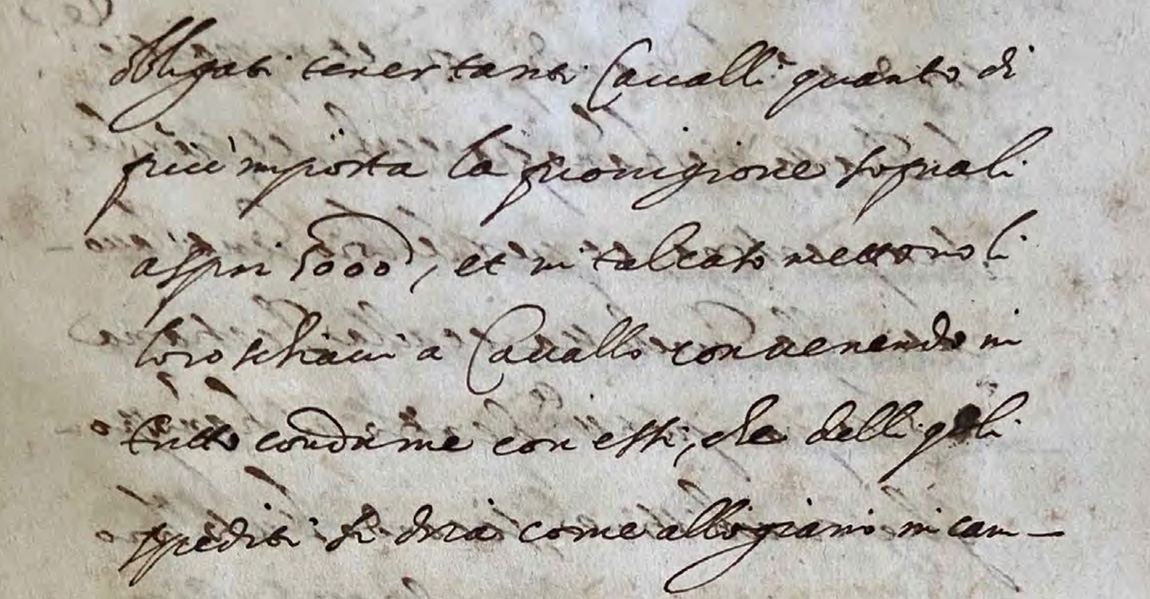 obligati tener tanti Caualli quanto di
più importa la prouigione sop.ª li
aspri 5000, et in tal caso mettono li
loro schiaui a Cauallo conuenendo in
tutto condurne con essi, che delli
spediti si dirà come allogiano in cam-